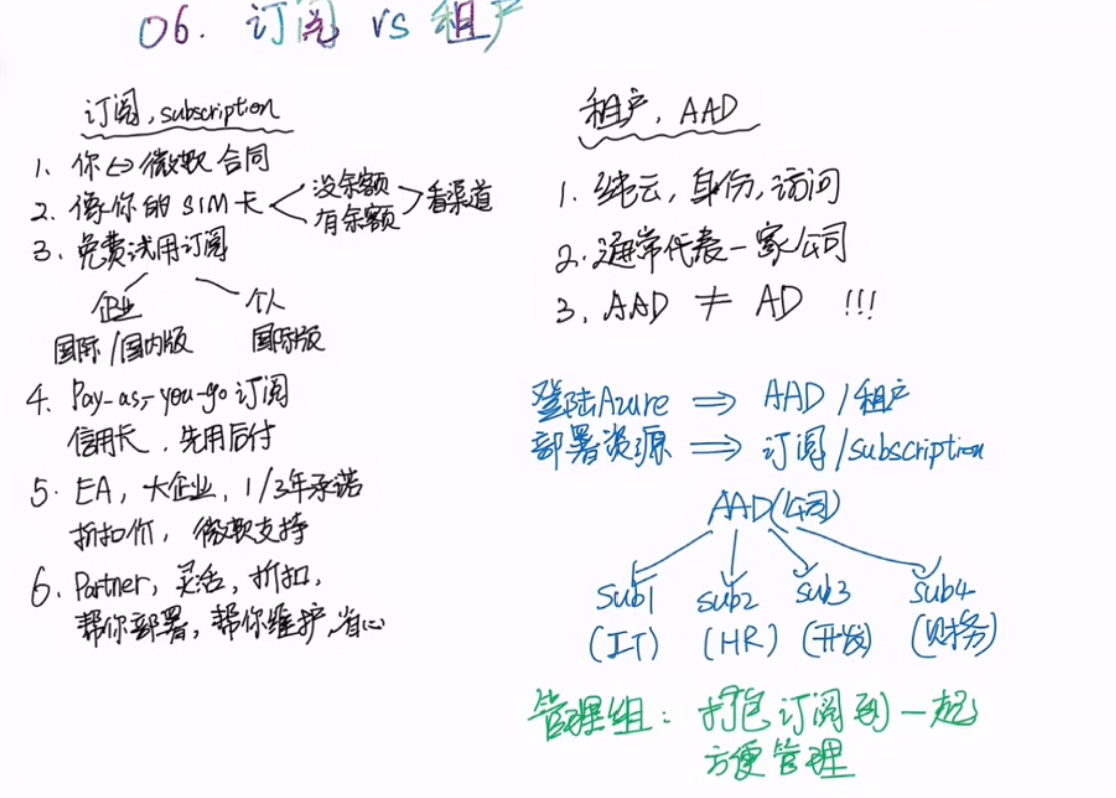 06. 订阅 vs 租户
订阅, subscription
1. 你⇔微软 合同
2. 像你的 SIM 卡
没余额
有余额
看渠道
3. 免费试用订阅
企业
个人
国际/国内版
国际版
4. Pay-as-you-go 订阅
信用卡, 先用后付
5. EA, 大企业, 1/3年承诺
折扣价, 微软支持
6. Partner, 灵活, 折扣,
帮你部署, 帮你维护, 省心
租户, AAD
1. 纯云, 身份, 访问
2. 通常代表一家公司
3. AAD ≠ AD !!!
登陆Azure ⇒ AAD/租户
部署资源 ⇒ 订阅/subscription
AAD(公司)
sub1 sub2 sub3 sub4
(IT) (HR) (开发) (财务)
管理组: 打包订阅到一起
方便管理